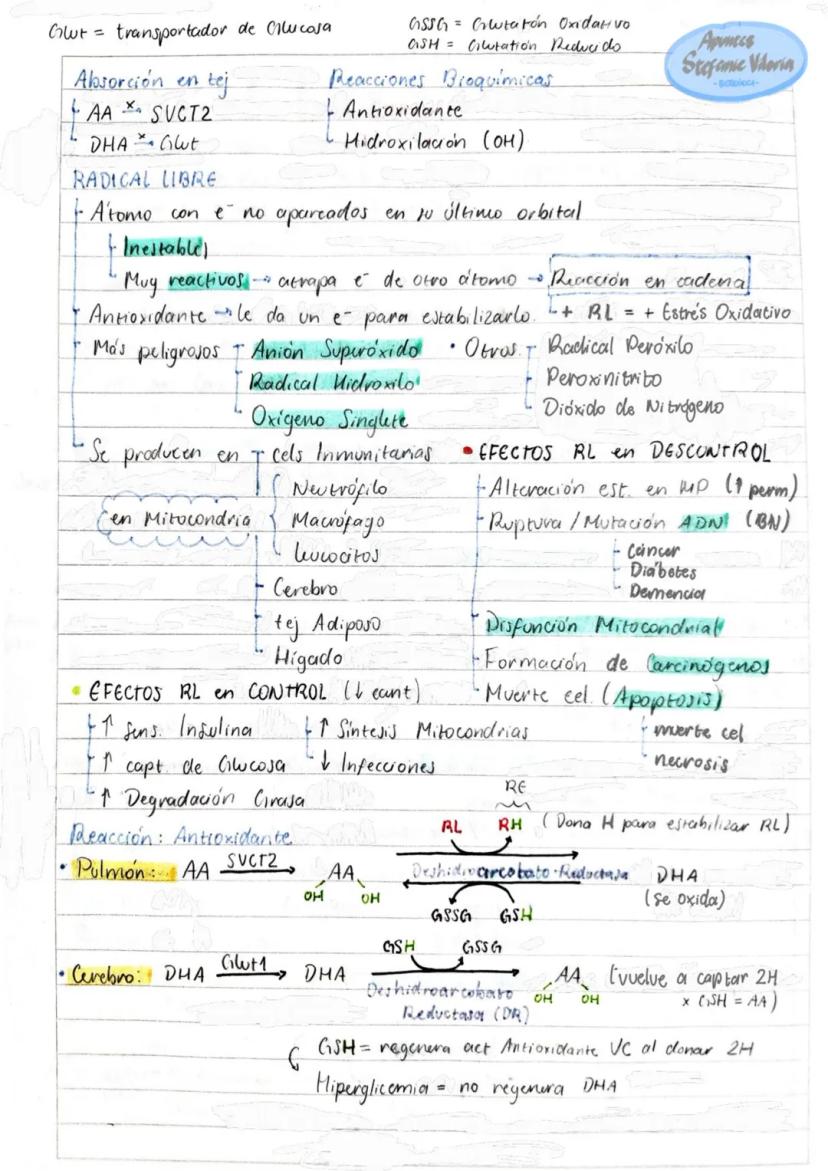 Glut = transportador de Glucosa
GSSG = Glutatón Oxidativo
GSH = Glutatión Reducido
Apuntes
Stefanie Viloria
Absorción en tej
AA x→ SVCT2
DHA x→ Glut
Reacciones Bioquímicas
Antioxidante
Hidroxilación (OH)
RADICAL LIBRE
Átomo con e⁻ no apareados en su último orbital
Inestable)
Muy reactivos → atrapa e⁻ de otro átomo → Reacción en cadena
+ RL = + Estrés Oxidativo
Antioxidante → le da un e⁻ para estabilizarlo.
Más peligrosos
Anión Superóxido
Radical Hidroxilo
Oxígeno Singlete
• Otros
Radical Peróxilo
Peroxinitrito
Dióxido de Nitrógeno
Se producen en
en Mitocondria
cels Inmunitarias
Neutrófilo
Macrófago
leucocitos
Cerebro
tej Adiposo
Hígado
• EFECTOS RL en DESCONTROL
Alteración est. en MP (↑ perm)
Ruptura / Mutación ADN (BN)
Cáncer
Diabetes
Demencia
Disfunción Mitocondrial
Formación de Carcinógenos
Muerte cel. (Apoptosis)
muerte cel
necrosis
• EFECTOS RL en CONTROL (↓ cant)
↑ Sens. Insulina
↑ capt. de Glucosa
↑ Degradación Grasa
↑ Síntesis Mitocondrias
↓ Infecciones
Reacción: Antioxidante
RE
RL RH (Dona H para estabilizar RL)
• Pulmón: AA SVCT2→ AA Deshidroarcobato Reductasa DHA
OH OH
(se oxida)
GSSG GSH
GSH GSSG
• Cerebro: DHA Glut1→ DHA → AA (vuelve a captar 2H
x GSH = AA)
OH OH
Deshidroarcobato
Reductasa (DR)
GSH = regenera act Antioxidante VC al donar 2H
Hiperglicemia = no regenera DHA